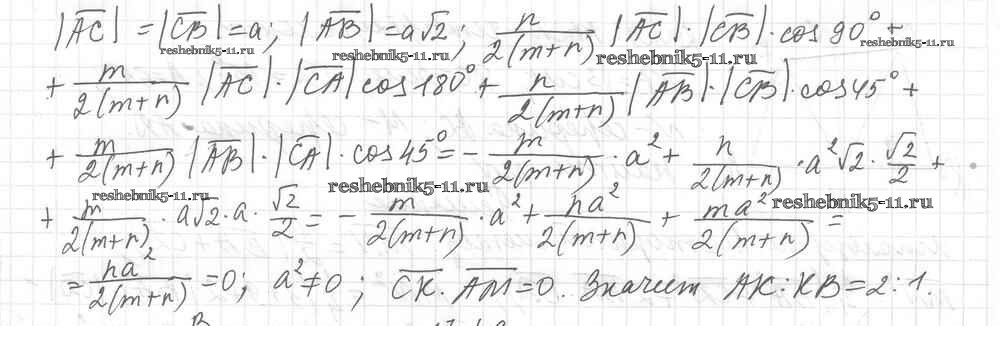 |AC| = |CB| = a; |AB| = a√2; n/2(m+n) |AC|·|CB|·cos 90° +
reshebnik5-11.ru reshebnik5-11.ru reshebnik5-11.ru
+ m/2(m+n) |AC|·|CA| cos 180° + n/2(m+n) |AB|·|CB|·cos 45° +
+ m/2(m+n) |AB|·|CA|·cos 45° = - m/2(m+n) · a² + n/2(m+n) · a²√2 · √2/2 +
reshebnik5-11.ru reshebnik5-11.ru reshebnik5-11.ru
+ m/2(m+n) · a√2 · a · √2/2 = - m/2(m+n) · a² + na²/2(m+n) + ma²/2(m+n) =
= na²/2(m+n) = 0; a² ≠ 0; CK · AM = 0. Значит AK:KB = 2:1.